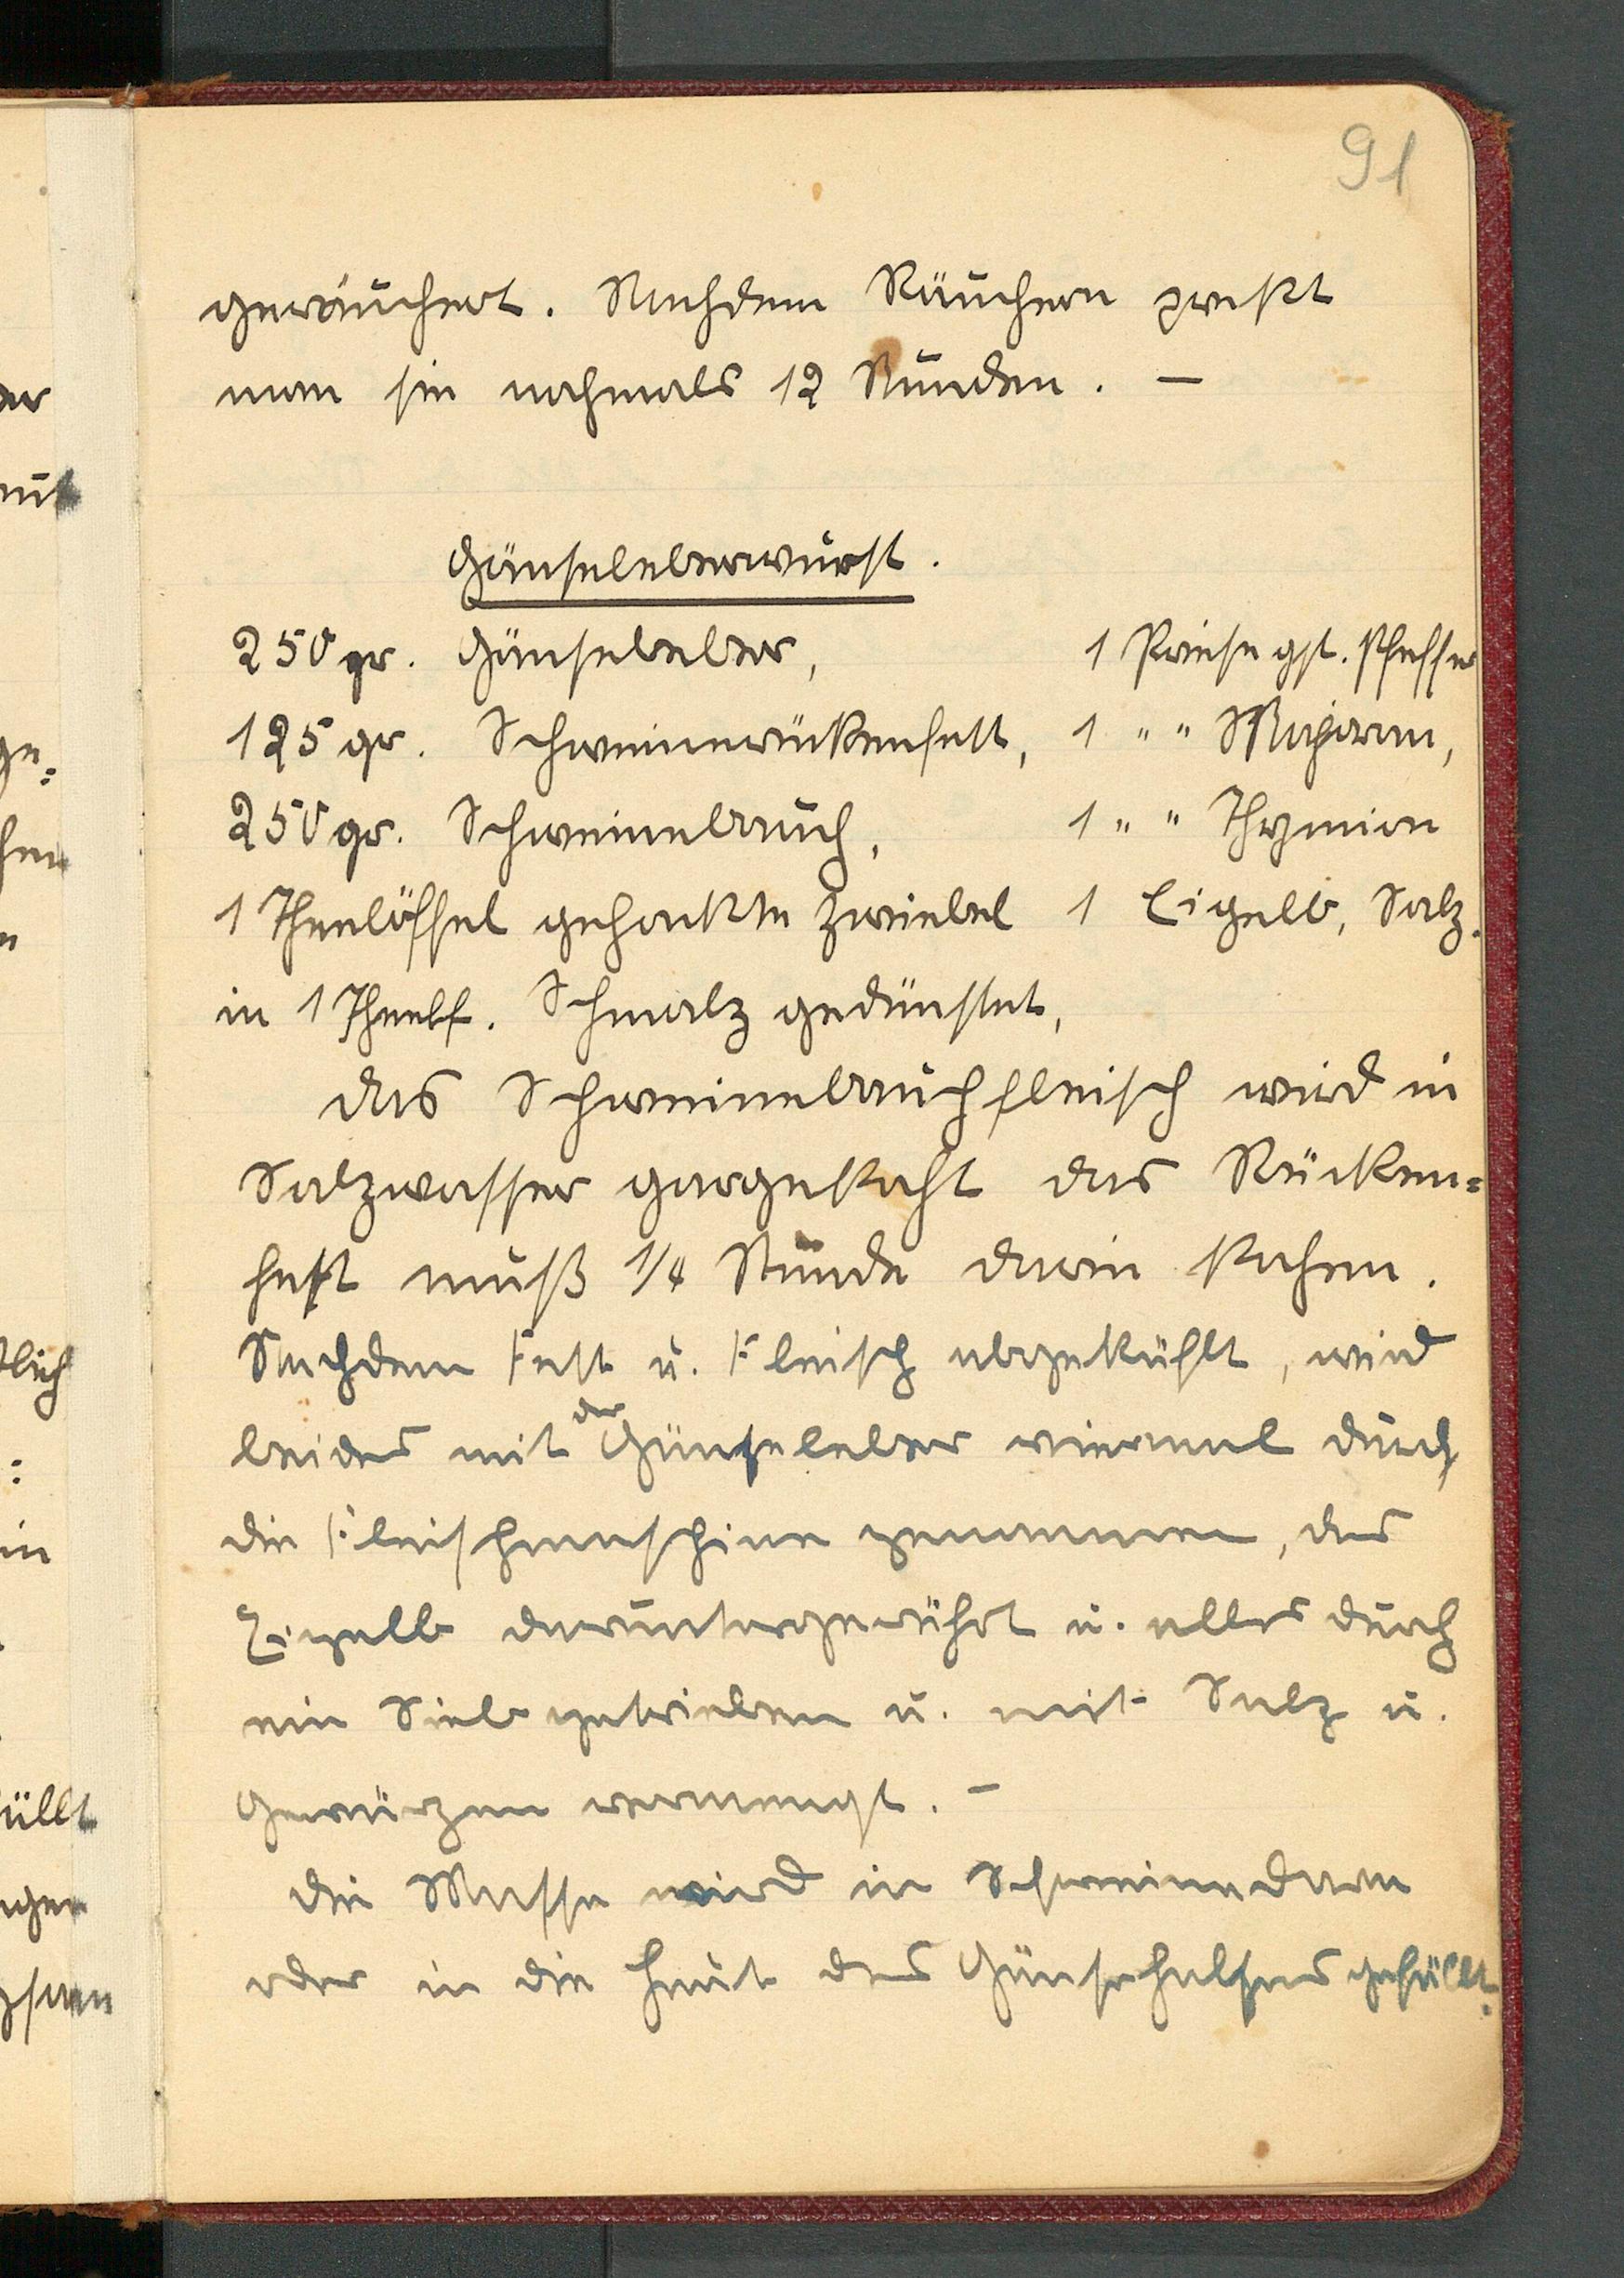 91
geräuchert. Nachdem Räuchern preßt
man sie nochmals 12 Stunden. —
Gänseleberwurst.
250 gr. Gänseleber, 1 Priese gst. Pfeffer
125 gr. Schweinerückenfett, 1 " " Majoran,
250 gr. Schweinebauch, 1 " " Thymian
1 Theelöffel gehackte Zwiebel 1 Eigelb, Salz.
in 1 Theelf. Schmalz gedünstet,
Das Schweinebauchfleisch wird in
Salzwasser gargekocht das Rücken=
fett muß 1/4 Stunde darin kochen.
Nachdem Fett u. Fleisch abgekühlt, wird
beides mit der Gänseleber viermal durch
die Fleischmaschine genommen, das
Eigelb daruntergerührt u. alles durch
ein Sieb getrieben u. mit Salz u.
Gewürzen vermengt. —
Die Masse wird in Schweinedarm
oder in die Haut des Gänsehalses gefüllt.